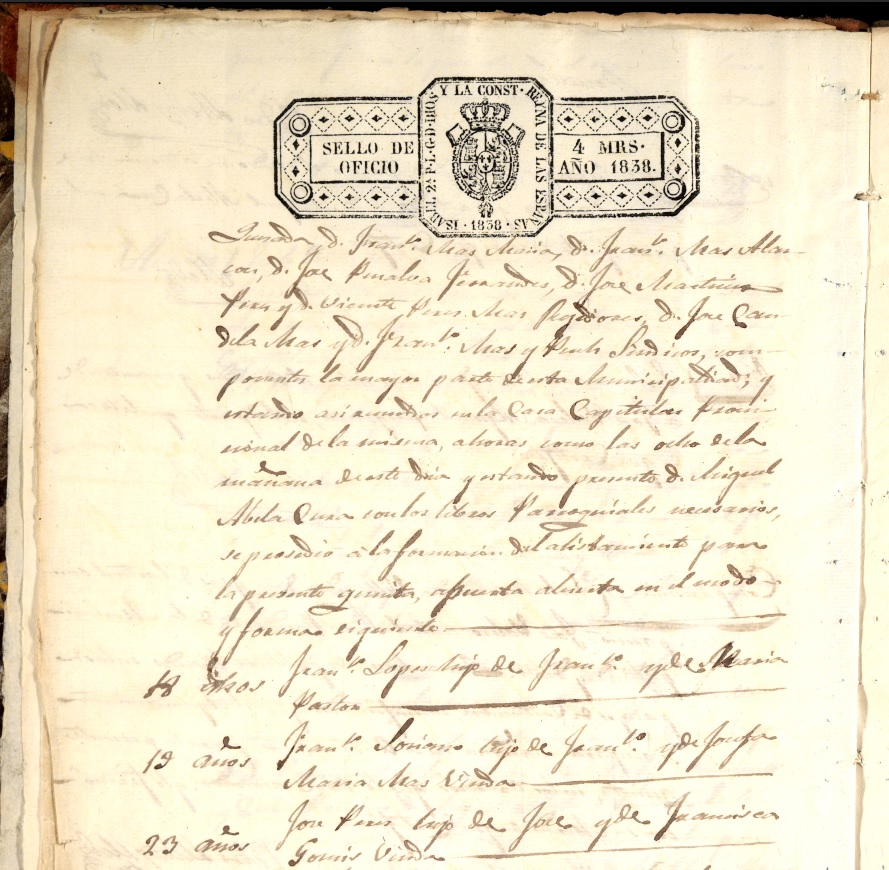 ISABEL 2ª P. L. G. D. DIOS Y LA CONST. REINA DE LAS ESPAÑAS · 1838 ·
SELLO DE OFICIO
4 MRS. AÑO 1838.
Quesada, d. Franco. Mas Maria, d. Franco. Mas Alar-
con, d. Jose Penalva Fernandes, d. Jose Martines
Peres y d. Vicente Peres Mas Regidores, d. Jose Can-
dela Mas y d. Franco. Mas y Sindicos, com-
ponentes la mayor parte de esta Municipalidad; y
estando asi reunidos en la Casa Capitular Provi-
cional de la misma, a horas como las ocho de la
mañana de este dia y estando presente d. Miguel
Abela Cura con los libros Parroquiales necesarios,
se prosedio a la formacion del alistamiento para
la presente quinta, a puerta abierta en el modo
y forma siguiente
18 años Franco. Lopes hijo de Franco. y de Maria
Pastor
19 años Franco. Soriano hijo de Franco. y de Josefa
Maria Mas Viuda
23 años Jose Peres hijo de Jose y de Francisca
Gomis Viuda